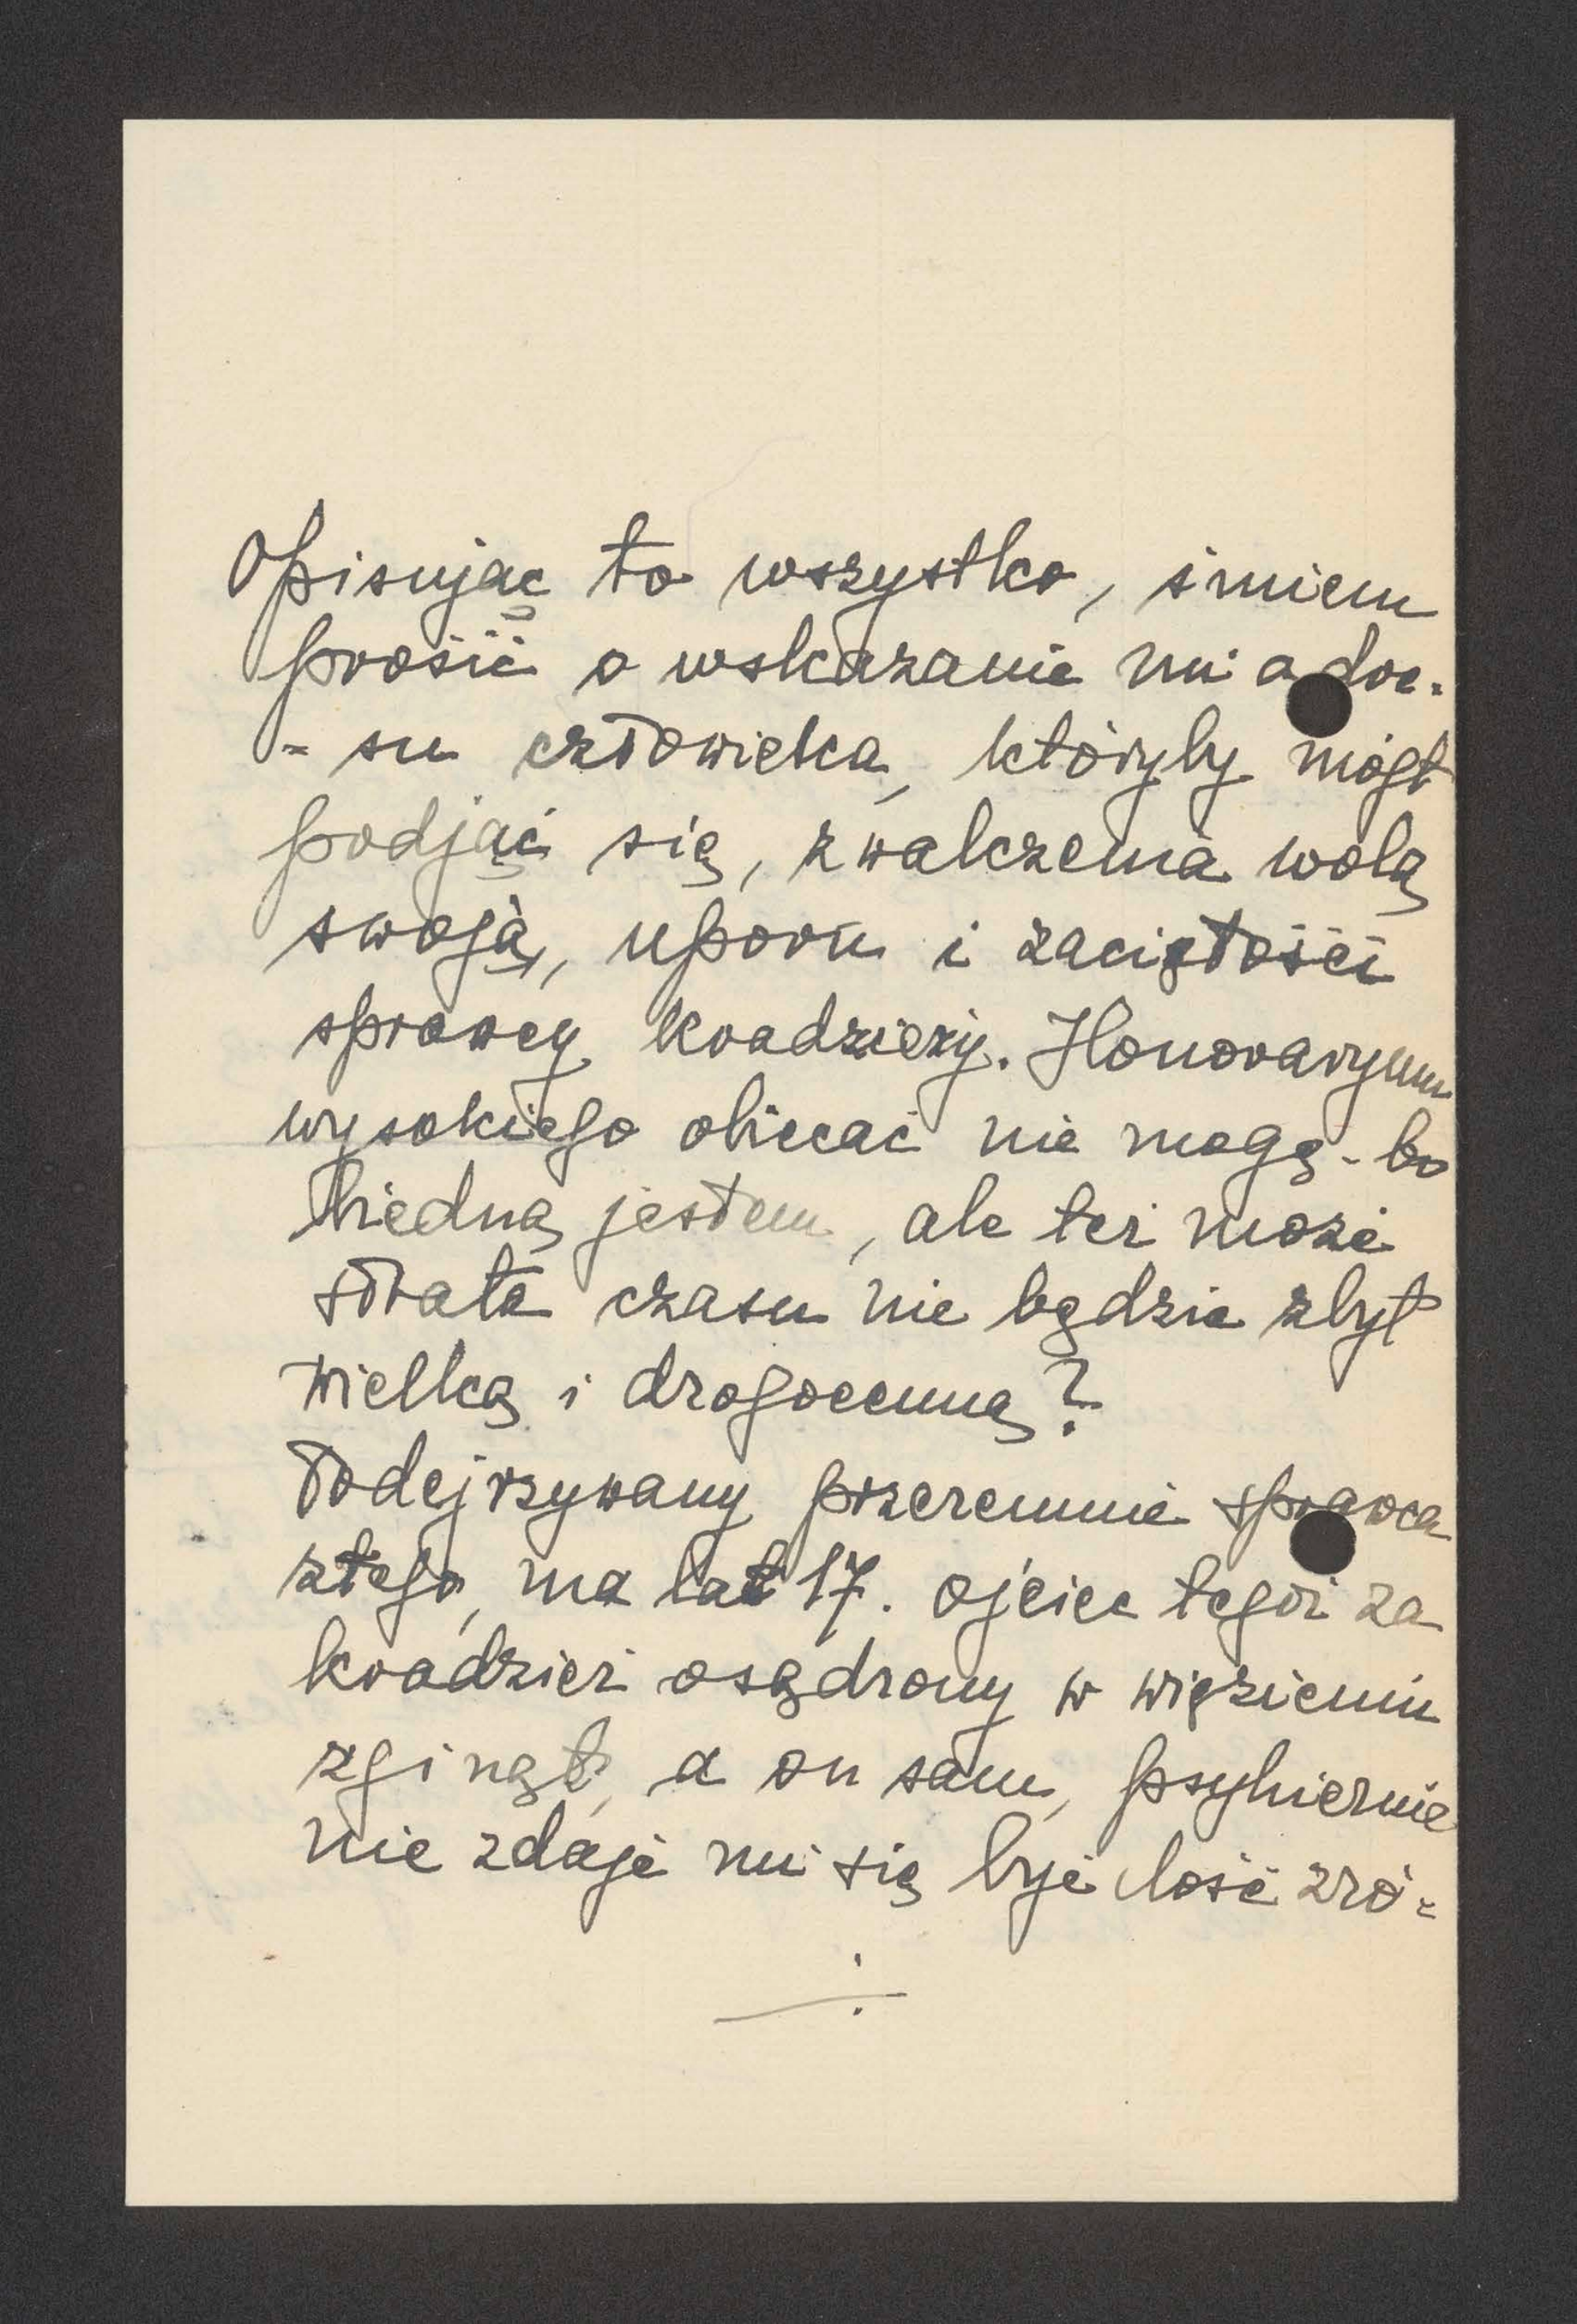 Opisując to wszystko, śmiem
prosić o wskazanie mi adre-
- su człowieka, któryby mógł
podjąć się, zwalczenia wolą
swoją, uporu i zaciętości
sprawcy kradzieży. Honoraryum
wysokiego obiecać nie mogę - bo
biedną jestem, ale też może
strata czasu nie będzie zbyt
wielką i drogocenną?
Podejrzywany przezemnie sprawca
złego, ma lat 17. ojciec tegoż za
kradzież osądzony w więzieniu
zginął, a on sam, psyhicznie
nie zdaje mi się być dość zró-
÷